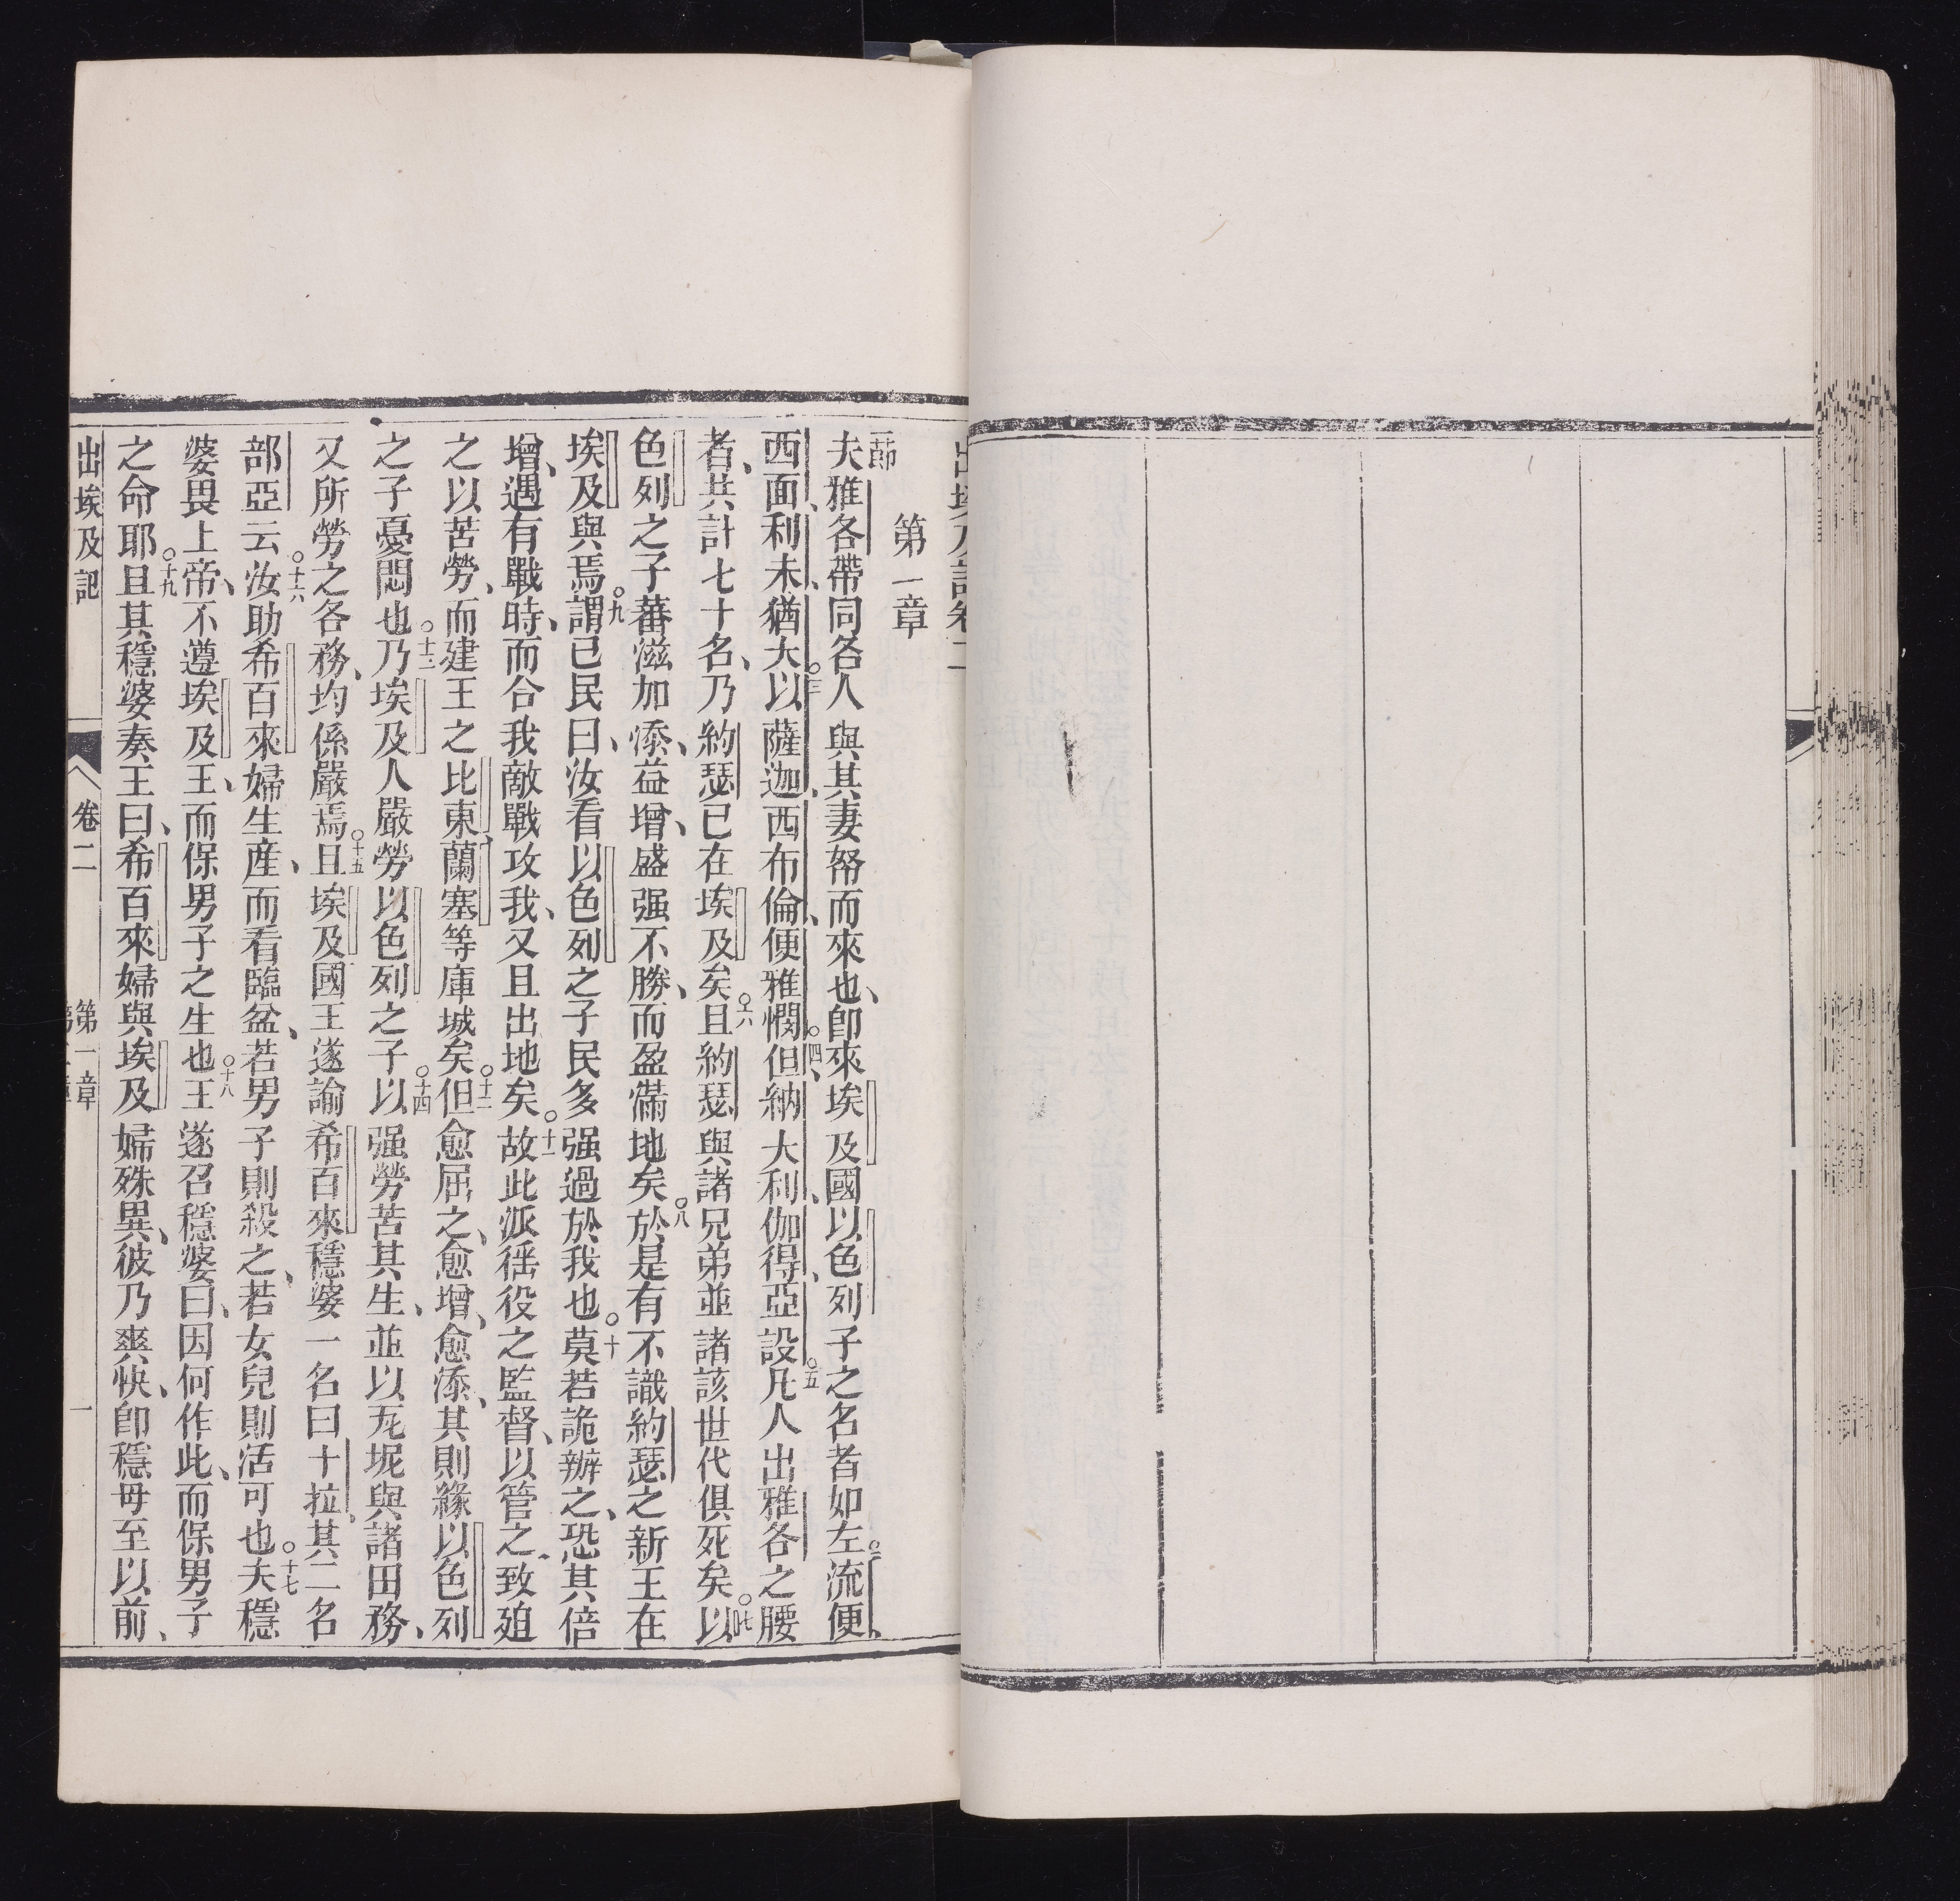 出埃及記卷二
第一章
一節夫雅各帶同各人與其妻帑而來也、卽來埃及國以色列子之名者如左○二流便、
西面、利未、猶大○三以薩迦、西布倫、便雅憫○四但、納大利、伽得、亞設○五凡人出雅各之腰
者、共計七十名、乃約瑟已在埃及矣○六且約瑟與諸兄弟並諸該世代俱死矣○七以
色列之子蕃滋加添、益增、盛强不勝、而盈滿地矣○八於是有不識約瑟之新王在
埃及與焉○九謂己民曰、汝看以色列之子民多强過於我也○十莫若詭辦之、恐其倍
增、遇有戰時、而合我敵戰攻我、又且出地矣○十一故此派徭役之監督、以管之致廹
之以苦勞、而建王之比東、蘭塞等庫城矣○十二但愈屈之、愈增、愈添、其則緣以色列
之子憂悶也○十三乃埃及人嚴勞以色列之子○十四以强勞苦其生、並以瓦坭與諸田務、
又所勞之各務、均係嚴焉○十五且埃及國王遂諭希百來穩婆一名曰十拉、其二名
部亞○十六云汝助希百來婦生產、而看臨盆、若男子則殺之、若女兒則活可也○十七夫穩
婆畏上帝、不遵埃及王、而保男子之生也○十八王遂召穩婆曰、因何作此、而保男子
之命耶○十九且其穩婆奏王曰、希百來婦與埃及婦殊異、彼乃爽快、卽穩母至以前、
出埃及記 卷二 第一章 一